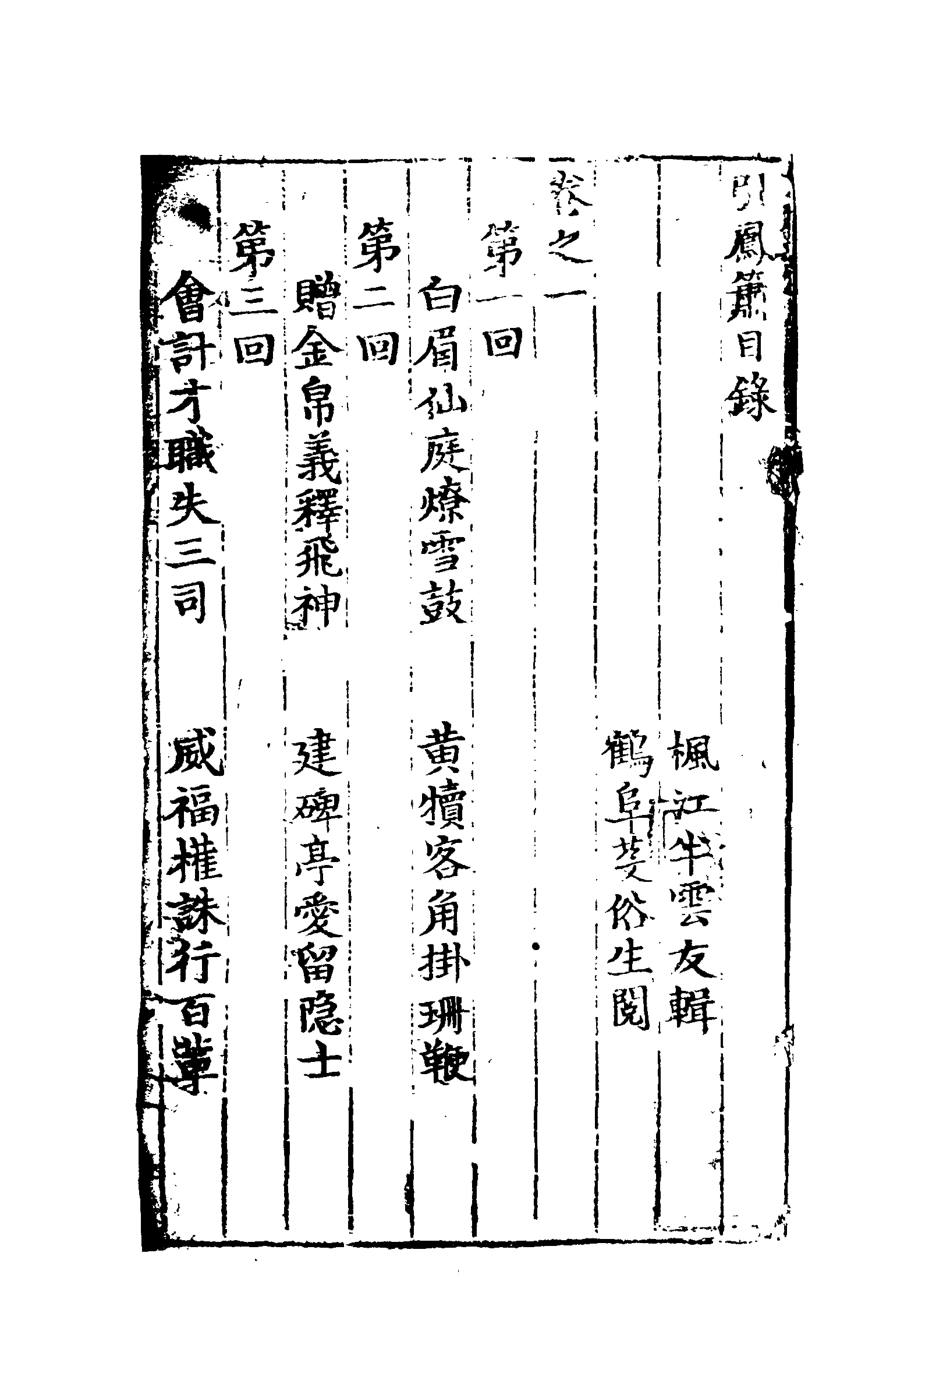 引鳳簫目錄
楓江半雲友輯
鶴阜芟俗生閱
卷之一
第一回
白眉仙庭燎雪鼓　黄犢客角掛珊鞭
第二回
贈金帛義釋飛神　建碑亭愛留隐士
第三回
會計才職失三司　威福權誅行百輩